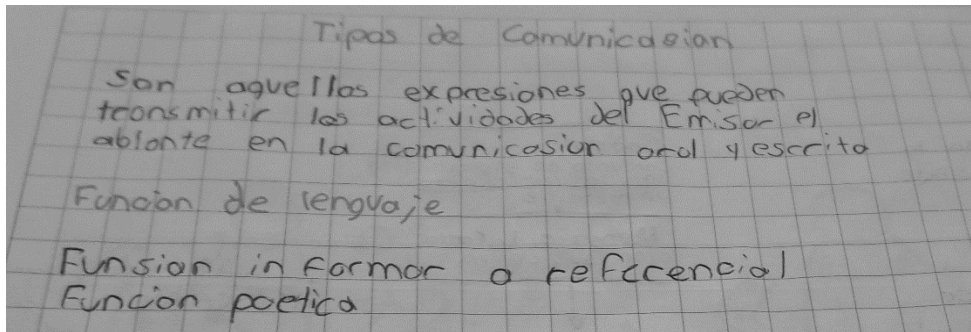 Tipos de Comunicasion
Son aquellas expresiones que pueden
transmitir las actividades del Emisor el
ablante en la comunicasion oral y escrita
Funcion de lenguaje
Funsion informar o referencial
Funcion poetica